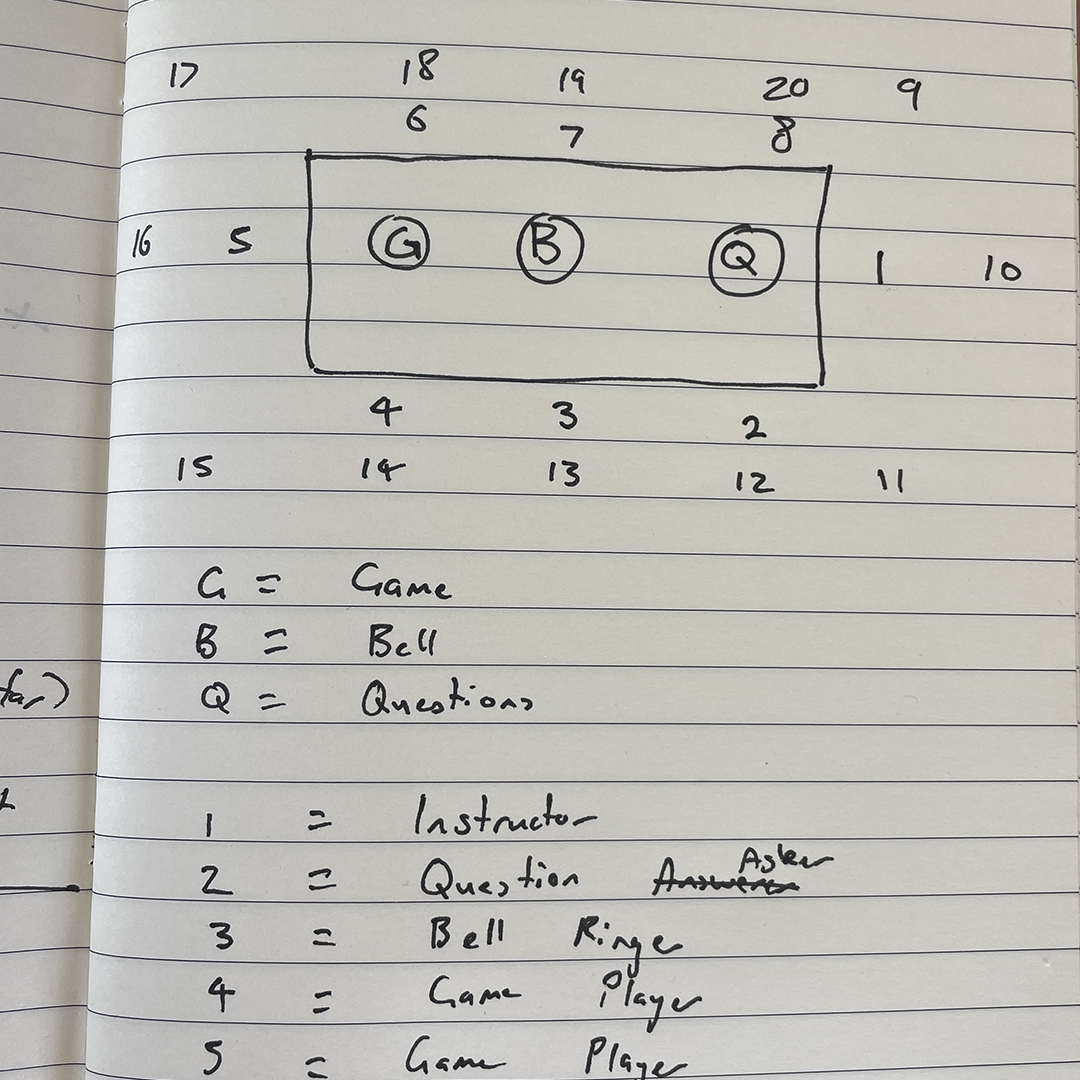 17 18 19 20 9
6 7 8
16 5 G B Q 1 10
4 3 2
15 14 13 12 11
G = Game
B = Bell
Q = Questions
1 = Instructor
2 = Question Answerer Asker
3 = Bell Ringer
4 = Game Player
5 = Game Player